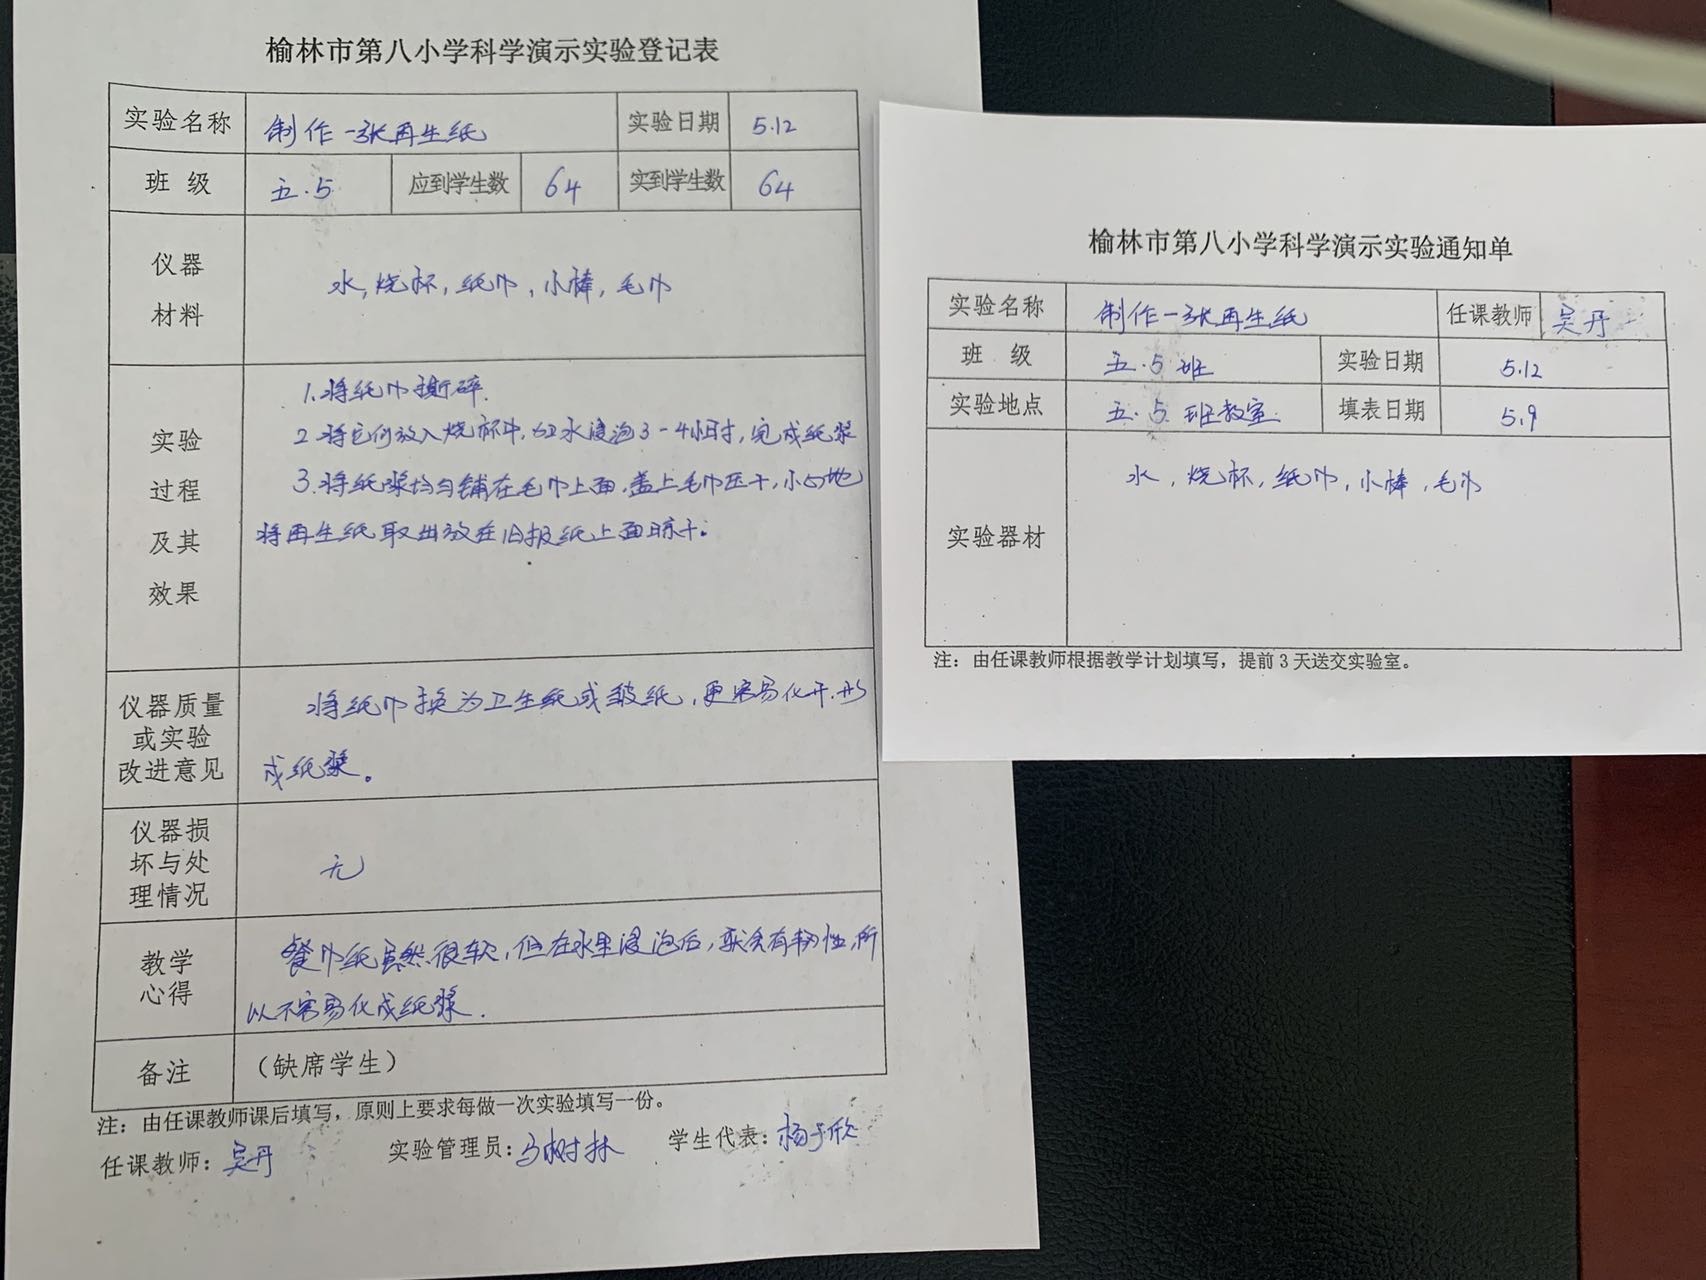 榆林市第八小学科学演示实验登记表
实验名称 制作一张再生纸 实验日期 5.12
班 级 五.5 应到学生数 64 实到学生数 64
仪器
材料
水,烧杯,纸巾,小棒,毛巾
实验
过程
及其
效果
1.将纸巾撕碎.
2.将它们放入烧杯中,加水浸泡3-4小时,完成纸浆
3.将纸浆均匀铺在毛巾上面,盖上毛巾压干,小心地
将再生纸取出放在旧报纸上面晾干。
仪器质量
或实验
改进意见
将纸巾换为卫生纸或皱纸,更容易化开.形
成纸浆。
仪器损
坏与处
理情况
无
教学
心得
餐巾纸虽然很软,但在水里浸泡后,就会有韧性,所
以不容易化成纸浆.
备注 (缺席学生)
注:由任课教师课后填写,原则上要求每做一次实验填写一份。
任课教师:吴丹 实验管理员:马树林 学生代表:杨子欣
榆林市第八小学科学演示实验通知单
实验名称 制作一张再生纸 任课教师 吴丹
班 级 五.5班 实验日期 5.12
实验地点 五.5班教室. 填表日期 5.9
实验器材 水,烧杯,纸巾,小棒,毛巾
注:由任课教师根据教学计划填写,提前3天送交实验室。